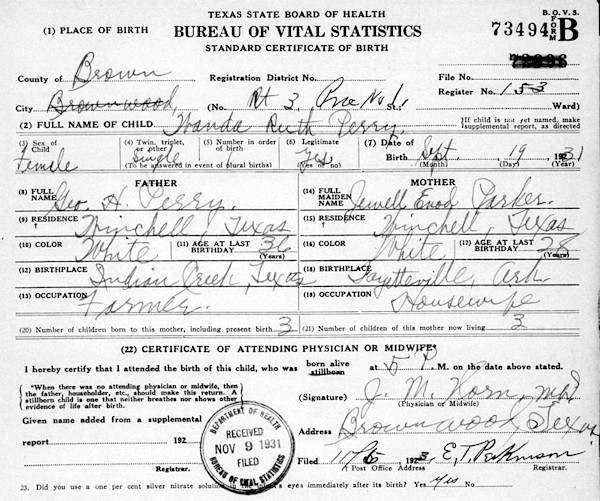 TEXAS STATE BOARD OF HEALTH
B. O. V. S.
(1) PLACE OF BIRTH BUREAU OF VITAL STATISTICS 73494 FORM B
STANDARD CERTIFICATE OF BIRTH
County of Brown Registration District No. File No.
City Brownwood, (No. Rt 3, Prec No 1 St. Register No. 153 Ward)
(2) FULL NAME OF CHILD Wanda Ruth Perry [If child is not yet named, make supplemental report, as directed
(3) Sex of Child Female (4) Twin, triplet, or other Single (5) Number in order of birth (To be answered in event of plural births) (6) Legitimate Yes (Yes or no) (7) Date of Birth Sept. (Month) 19 (Day) 1931
FATHER MOTHER
(8) FULL NAME Geo. H. Perry. (14) FULL MAIDEN NAME Jewell Enod Parker.
(9) RESIDENCE Winchell, Texas (15) RESIDENCE Winchell, Texas
(10) COLOR White (11) AGE AT LAST BIRTHDAY 36 (Years) (16) COLOR White (17) AGE AT LAST BIRTHDAY 28 (Years)
(12) BIRTHPLACE Indian Creek, Texas (18) BIRTHPLACE Fayetteville, Ark
(13) OCCUPATION Farmer. (19) OCCUPATION Housewife
(20) Number of children born to this mother, including present birth 3 (21) Number of children of this mother now living 3
(22) CERTIFICATE OF ATTENDING PHYSICIAN OR MIDWIFE*
I hereby certify that I attended the birth of this child, who was born alive stillborn at 5 P. M. on the date above stated.
*When there was no attending physician or midwife, then the father, householder, etc., should make this return. A stillborn child is one that neither breathes nor shows other evidence of life after birth.
(Signature) J. M. Horn, MD
(Physician or Midwife)
Given name added from a supplemental
report 192
Registrar.
DEPARTMENT OF HEALTH
RECEIVED
NOV 9 1931
FILED
BUREAU OF VITAL STATISTICS
Address Brownwood, Texas
Filed 192 E. T. Perkinson
Post Office Address Registrar.
23. Did you use a one per cent silver nitrate solution in the infant's eyes immediately after its birth? Yes Yes No